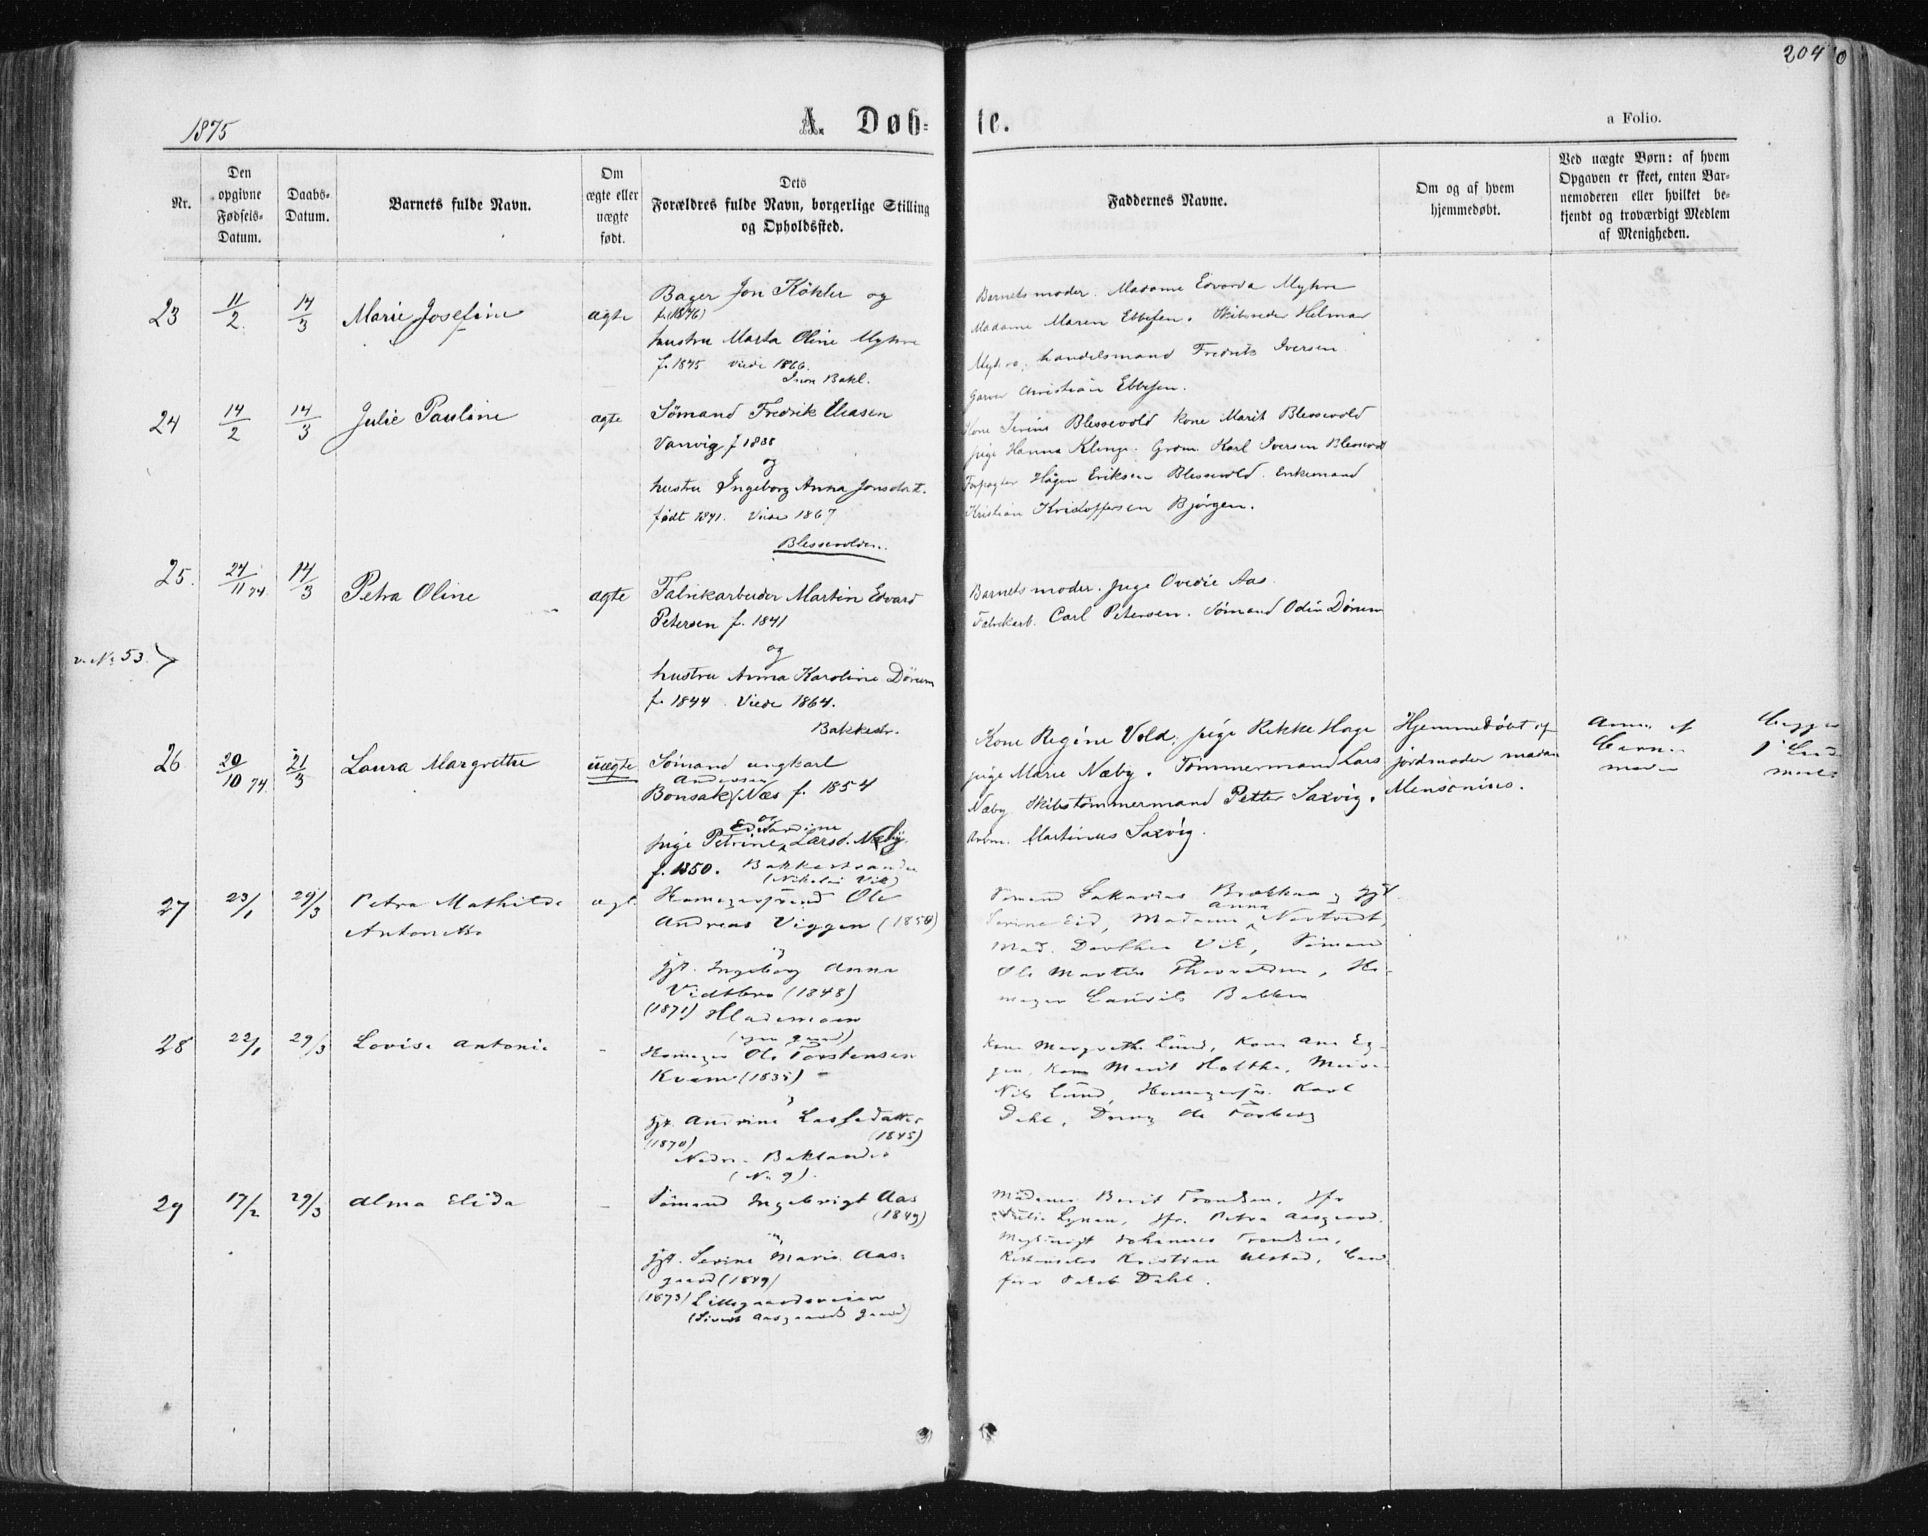 204
1875
A. Døb-
te.
a Folio.
Nr.
Den opgivne Fødsels-Datum.
Daabs-Datum.
Barnets fulde Navn.
Om ægte eller uægte født.
Dets Forældres fulde Navn, borgerlige Stilling og Opholdssted.
Faddernes Navne.
Om og af hvem hjemmedøbt.
Ved uægte Børn: af hvem
Opgaven er skeet, enten Bar-
nemoderen eller hvilket be-
kjendt og troværdigt Medlem
af Menigheden.
23 11/2 14/3 Marie Josefine ægte
Bager Jon Köhler og
f. (1846)
hustru Marta Oline Myhre
f. 1845 viede 1866.
Bakl.
Barnets moder. Madame Edvarda Myhre
Madame Maren Ebbesen. Skibsreder Helmar
Myhre, handelsmand Fredrik Iversen
Garver Christian Ebbesen.
24 14/2 14/3 Julie Pauline ægte
Sømand Fredrik Eliasen
Vanvig f 1838
og
hustru Ingeborg Anna Jonsdat.
født 1841. Viede 1867
Blessevolden.
Kone Serine Blessevold kone Marit Blessevold
pige Hanna Klinge. Grom. Karl Iversen Blessevold
Forpagter Hågen Eriksen Blessevold. Enkemand
Kristian Kristoffersen Bjørgen.
25. 24/11 74 14/3 Petra Oline ægte
Fabrikarbeider Martin Edvard
Petersen f. 1841
og
hustru Anna Karoline Dörum
f. 1844 Viede 1864.
Bakkestr.
Barnets moder. pige Ovedie Aas
Fabrikarb. Carl Petersen. Sømand Odin Dörum
v. No 53.
26 20/10 74. 21/3 Laura Margrethe uægte
Sømand ungkarl
Andersen
Bonsak Næs f. 1854
og
Edvardine
pige Petrine Larsd. Næby.
f. 1850. Bakkestranden
(Nikolai Vik)
Kone Regine Vold, pige Rikke Hage
pige Marie Næby. Tømmermand Lars
Næby Skibstømmermand Petter Saxvig.
Arbm. Martinus Saxvig.
Hjemmedöbt af
jordmoder madam
Mensonius.
27 23/1 29/3 Petra Mathilde
Antonette
Ole
Andreas Viggen (1850)
Ingeborg Anna
Vidtbro (1848)
(1871) Hlademoen
Sømand Sakarias
Serine Eid, Madame Anna
Mad. Dorthea Vik, Sømand
Ole Martin Thorvaldsen,
Laurits Bakken
28 22/1 29/3 Lovise Antonie -
Ole Torstensen
Kvam (1835)
Andrine Lassedatter
(1870) (1845)
Nedre Baklandet
(No 9).
Kone Margrethe Lund, Kone Ane Eg-
gen, Kone Marit Holthe,
Nils Lund, Karl
Dahl, Dreng Ole Forberg
29 17/2 29/3 Alma Elida -
Sømand Ingebrigt Aas
(1849)
Serine Marie Aas-
gaard (1849)
(1873) Lillegaardsveien
(Sivert Aasgaards gaard)
Madame Berit Trondsen, Jfr
Julie Lynan, Jfr. Petra Aasgaard,
Johannes Trondsen,
Kristian Ulstad,
Jakob Dahl.